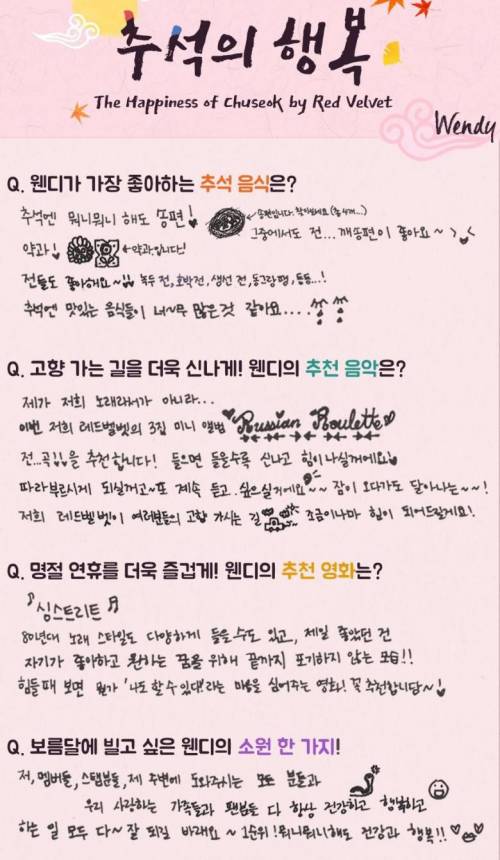 추석의 행복
The Happiness of Chuseok by Red Velvet
Wendy
Q. 웬디가 가장 좋아하는 추석 음식은?
추석엔 뭐니뭐니 해도 송편! ←송편입니다.
그중에서도 전... 깨송편이 좋아요~
약과! ←약과입니다!
전들도 좋아해요~!! 녹두전, 호박전, 생선전, 동그랑땡, 등등...!
추석엔 맛있는 음식들이 너~무 많은것 같아요....
Q. 고향 가는 길을 더욱 신나게! 웬디의 추천 음악은?
제가 저희 노래라서가 아니라...
이번 저희 레드벨벳의 3집 미니 앨범 Russian Roulette
전..곡!!을 추천합니다! 들으면 들을수록 신나고 힘이나실꺼에요
따라부르시게 되실꺼고~또 계속 듣고..싶으실거에요~~ 잠이 오다가도 달아나는~~!
저희 레드벨벳이 여러분들의 고향 가시는 길 조금이나마 힘이 되어드릴게요!
Q. 명절 연휴를 더욱 즐겁게! 웬디의 추천 영화는?
♪싱스트리트♬
80년대 노래 스타일도 다양하게 들을수도 있고, 제일 좋았던 건
자기가 좋아하고 원하는 꿈을 위해 끝까지 포기하지 않는 모습!!
힘들때 보면 뭔가 '나도 할 수 있다!'라는 마음을 심어주는 영화! 꼭 추천합니담~!
Q. 보름달에 빌고 싶은 웬디의 소원 한 가지!
저, 멤버들, 스탭분들, 제 주변에 도와주시는 모든 분들과
우리 사랑하는 가족들과 팬분들 다 항상 건강하고 행복하고
하는 일 모두 다~ 잘 되길 바래요~ 1순위! 뭐니뭐니해도 건강과 행복!!